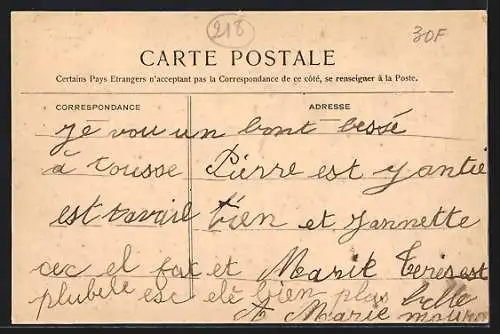 218
30F
CARTE POSTALE
Certains Pays Etrangers n'acceptant pas la Correspondance de ce côté, se renseigner à la Poste.
CORRESPONDANCE
ADRESSE
Je vou un bont bessé
à tousse Pierre est yantie
est travail bien et Jannette
cec el fax et Marie Teris est
plubele esc elè bien plus belle
Marie